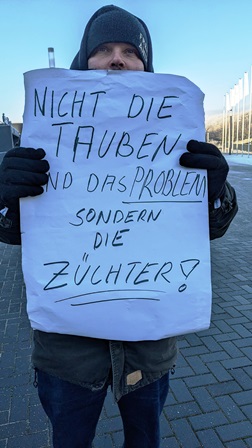 NICHT DIE
TAUBEN
ND DAS PROBLEM
SONDERN
DIE
ZÜCHTER!